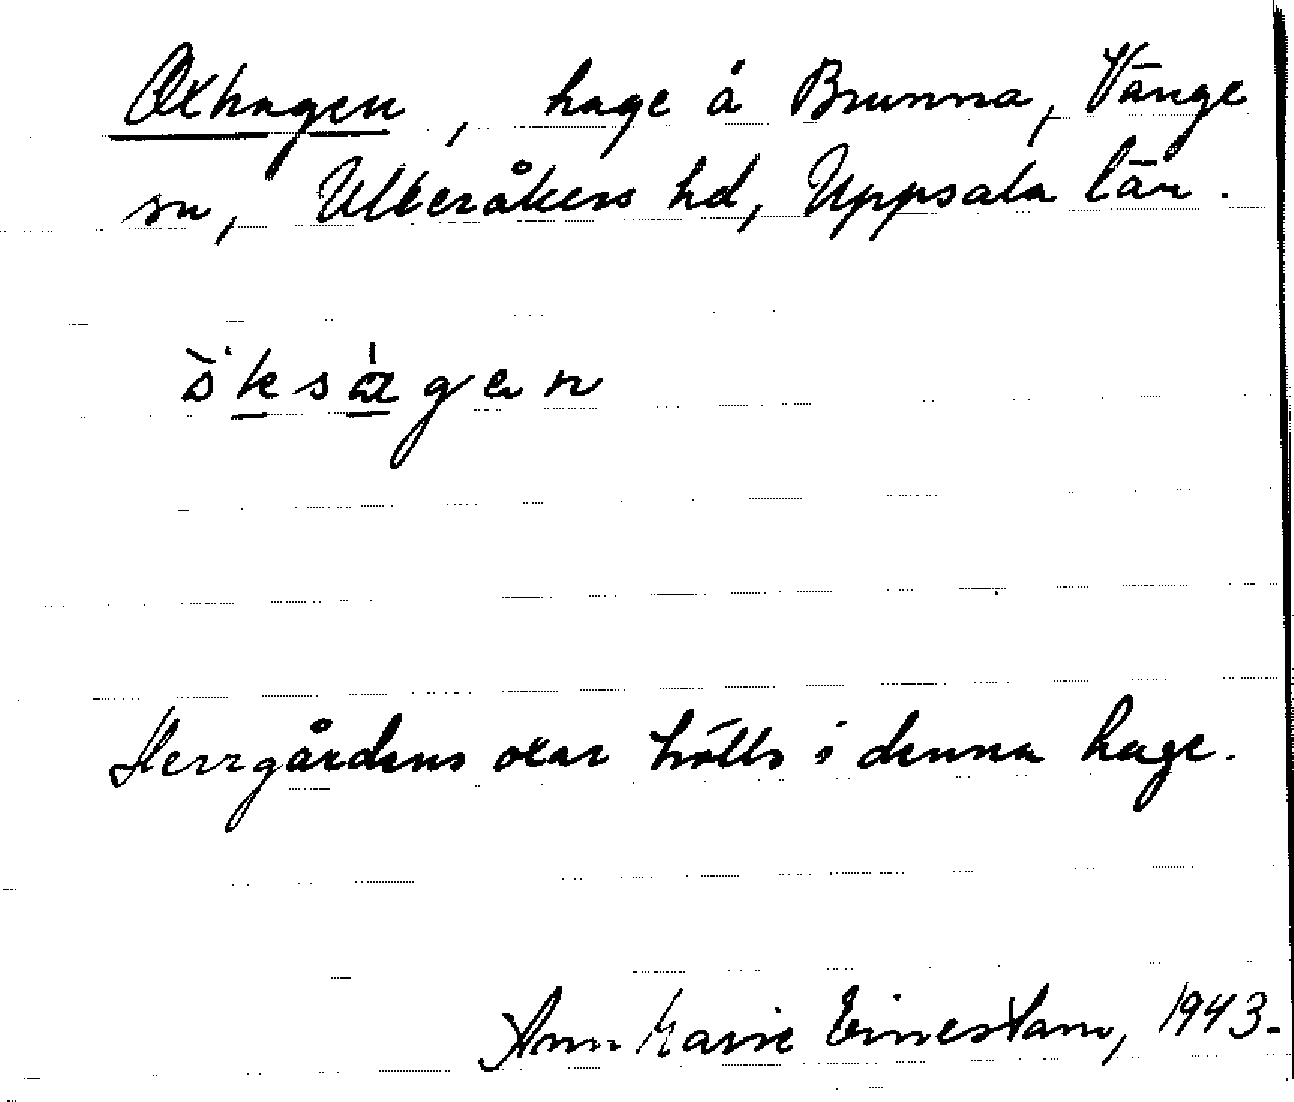 Oxhagen, hage å Brunna, Vänge
sn, Ulleråkers hd, Uppsala län.
ò̈ksàgen
Herrgårdens oxar hölls i denna hage.
Ann Marie Einerstam, 1943.